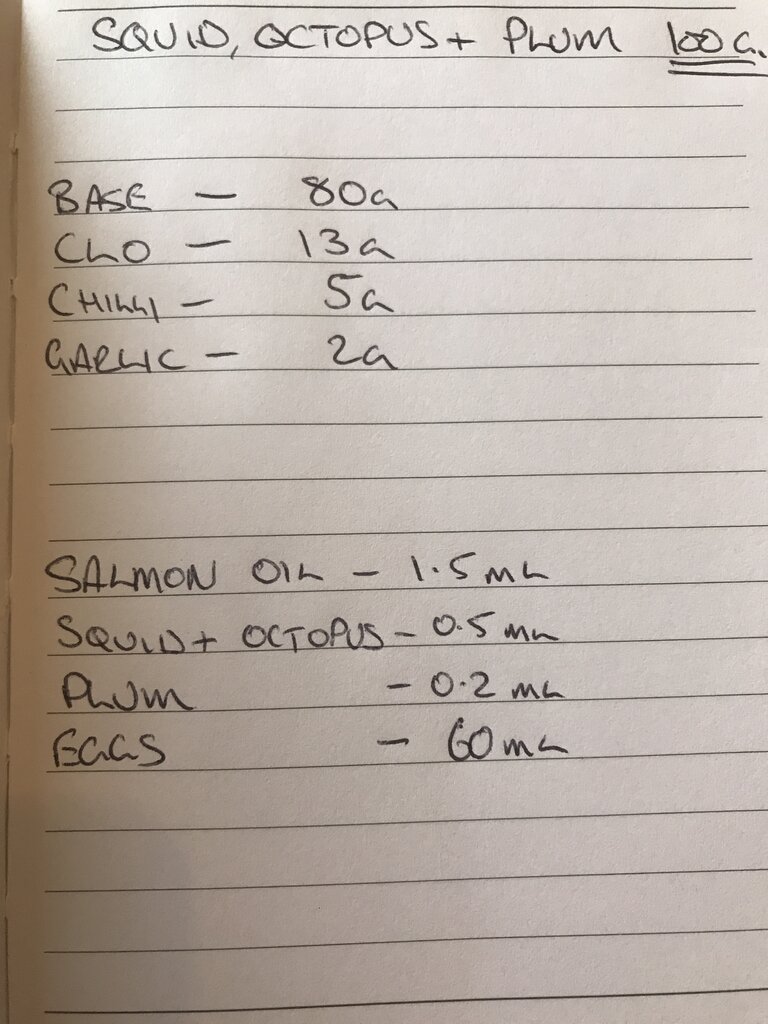 SQUID, OCTOPUS + PLUM 100G.
BASE - 80G
CLO - 13G
CHILLI - 5G
GARLIC - 2G
SALMON OIL - 1.5ML
SQUID + OCTOPUS - 0.5ML
PLUM - 0.2ML
EGGS - 60ML